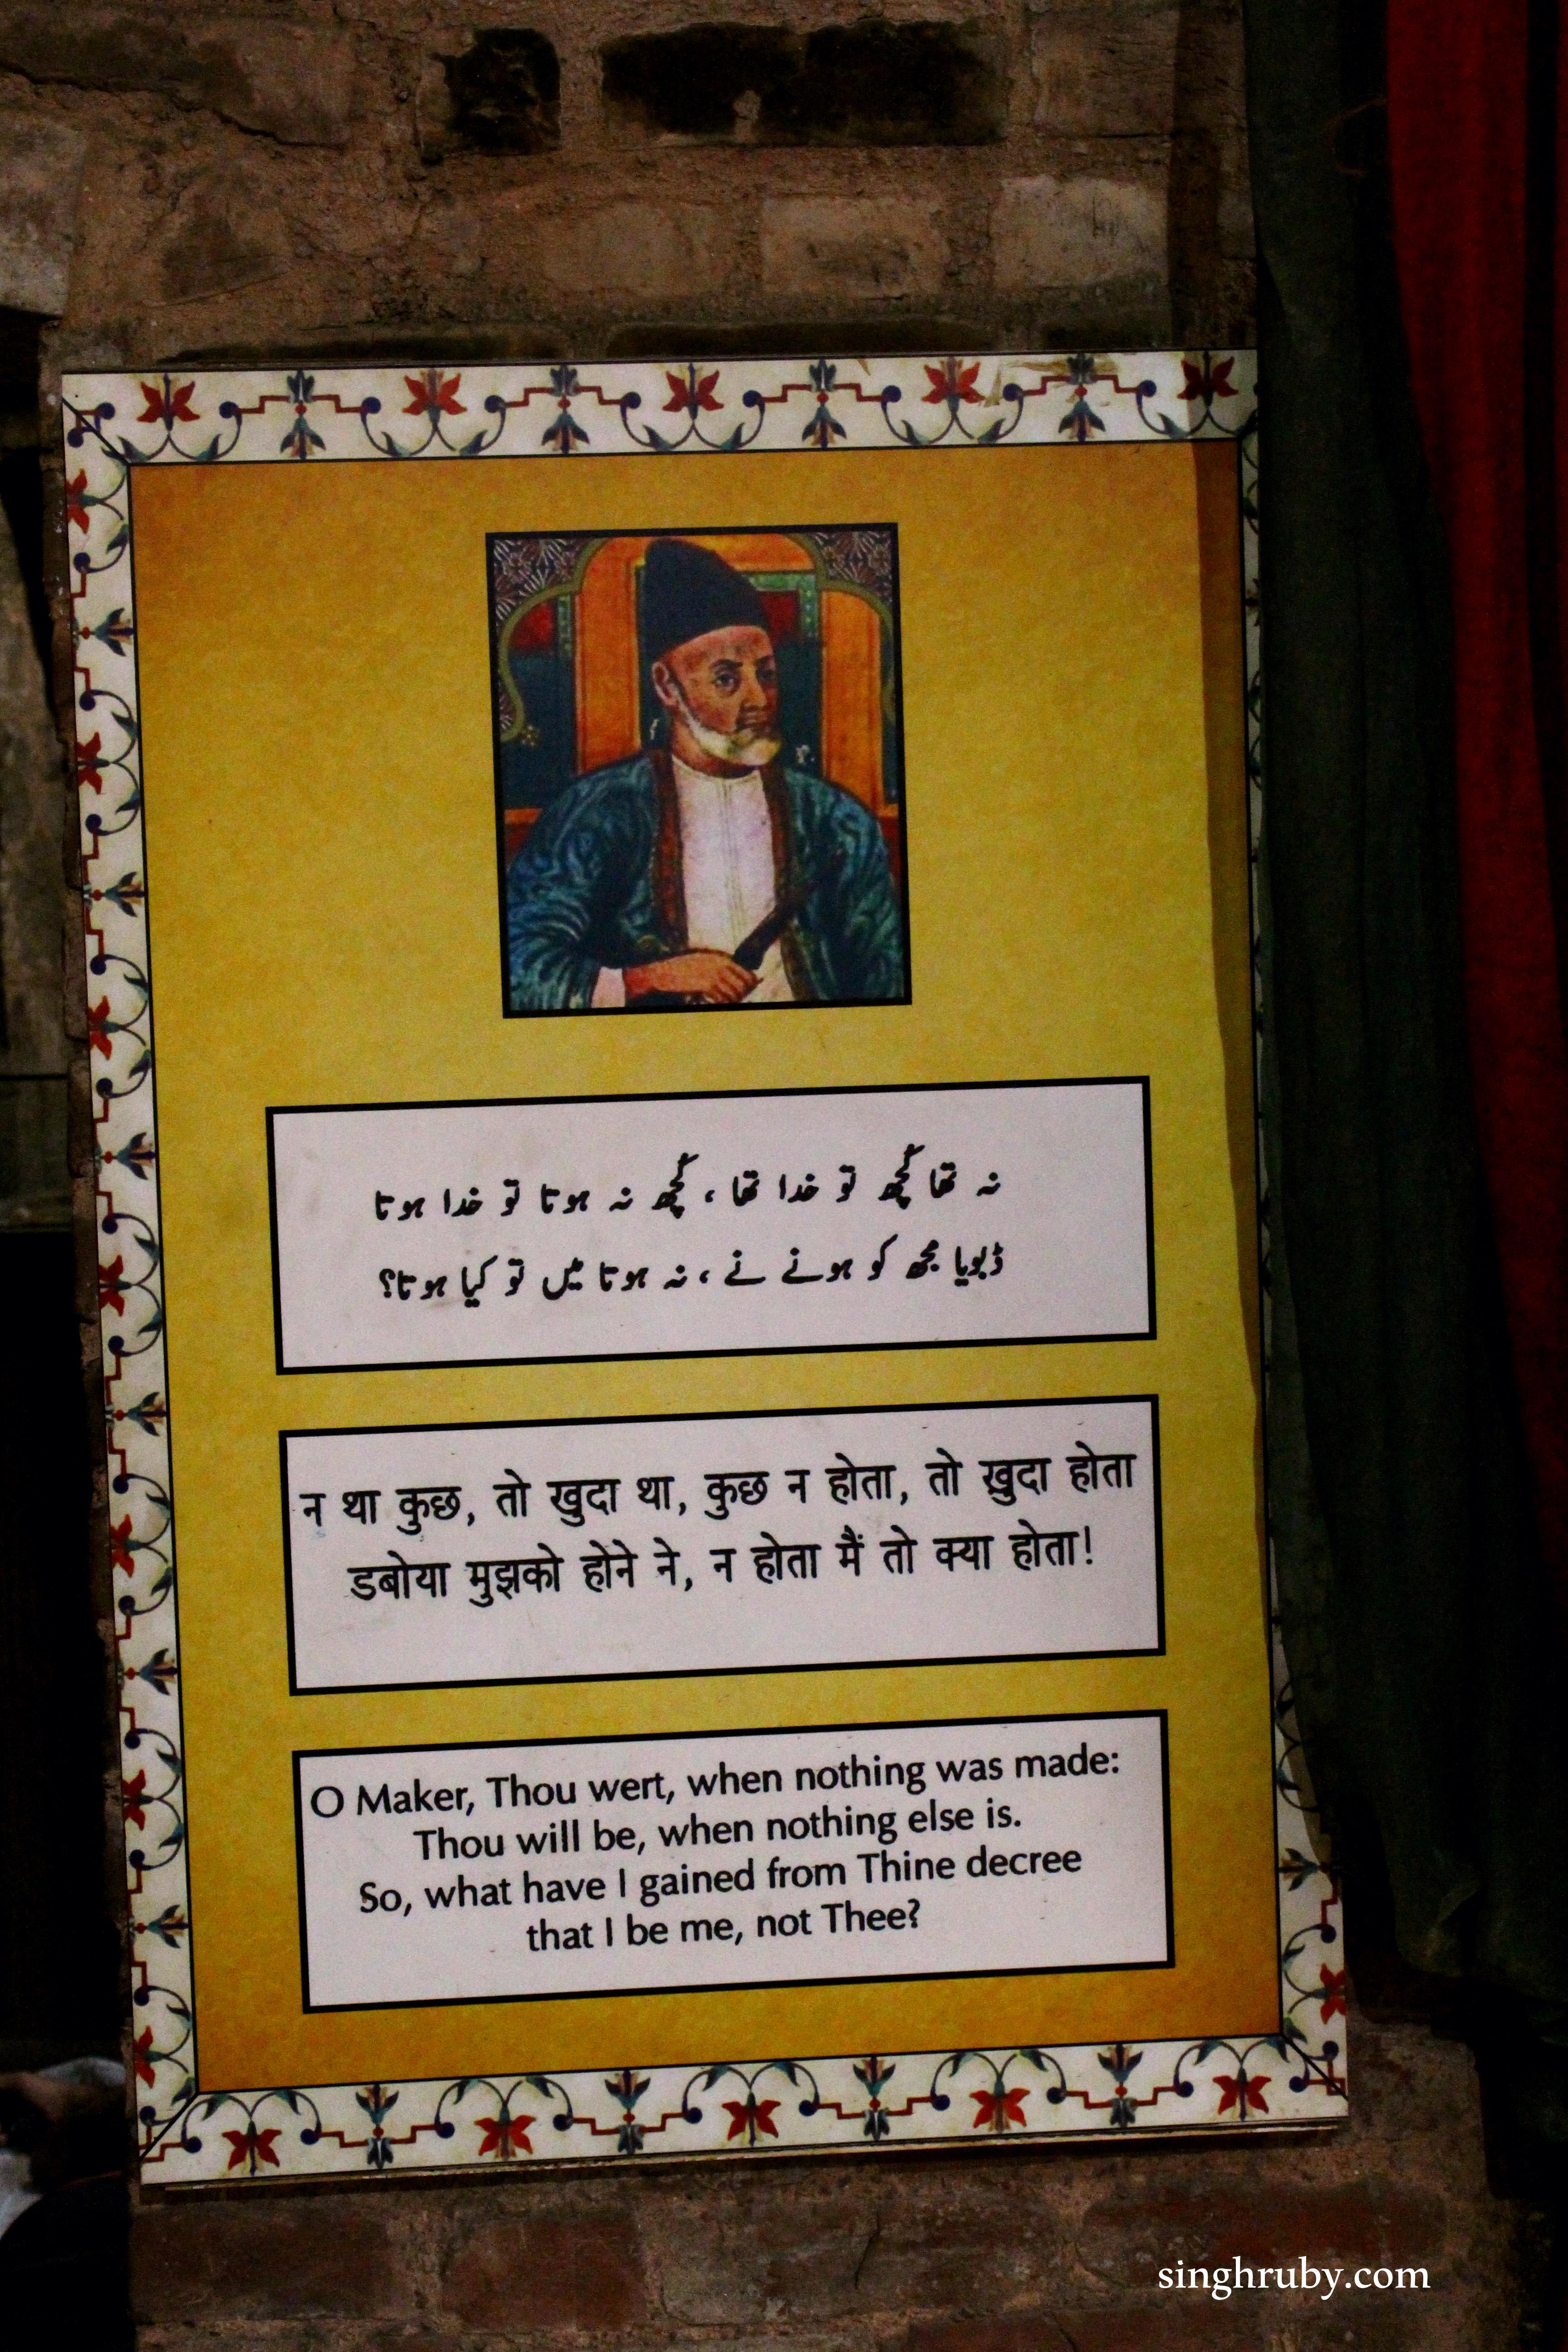 نہ تھا کچھ تو خدا تھا، کچھ نہ ہوتا تو خدا ہوتا
ڈبویا مجھ کو ہونے نے، نہ ہوتا میں تو کیا ہوتا؟
न था कुछ, तो खुदा था, कुछ न होता, तो ख़ुदा होता
डबोया मुझको होने ने, न होता मैं तो क्या होता!
O Maker, Thou wert, when nothing was made:
Thou will be, when nothing else is.
So, what have I gained from Thine decree
that I be me, not Thee?
singhruby.com